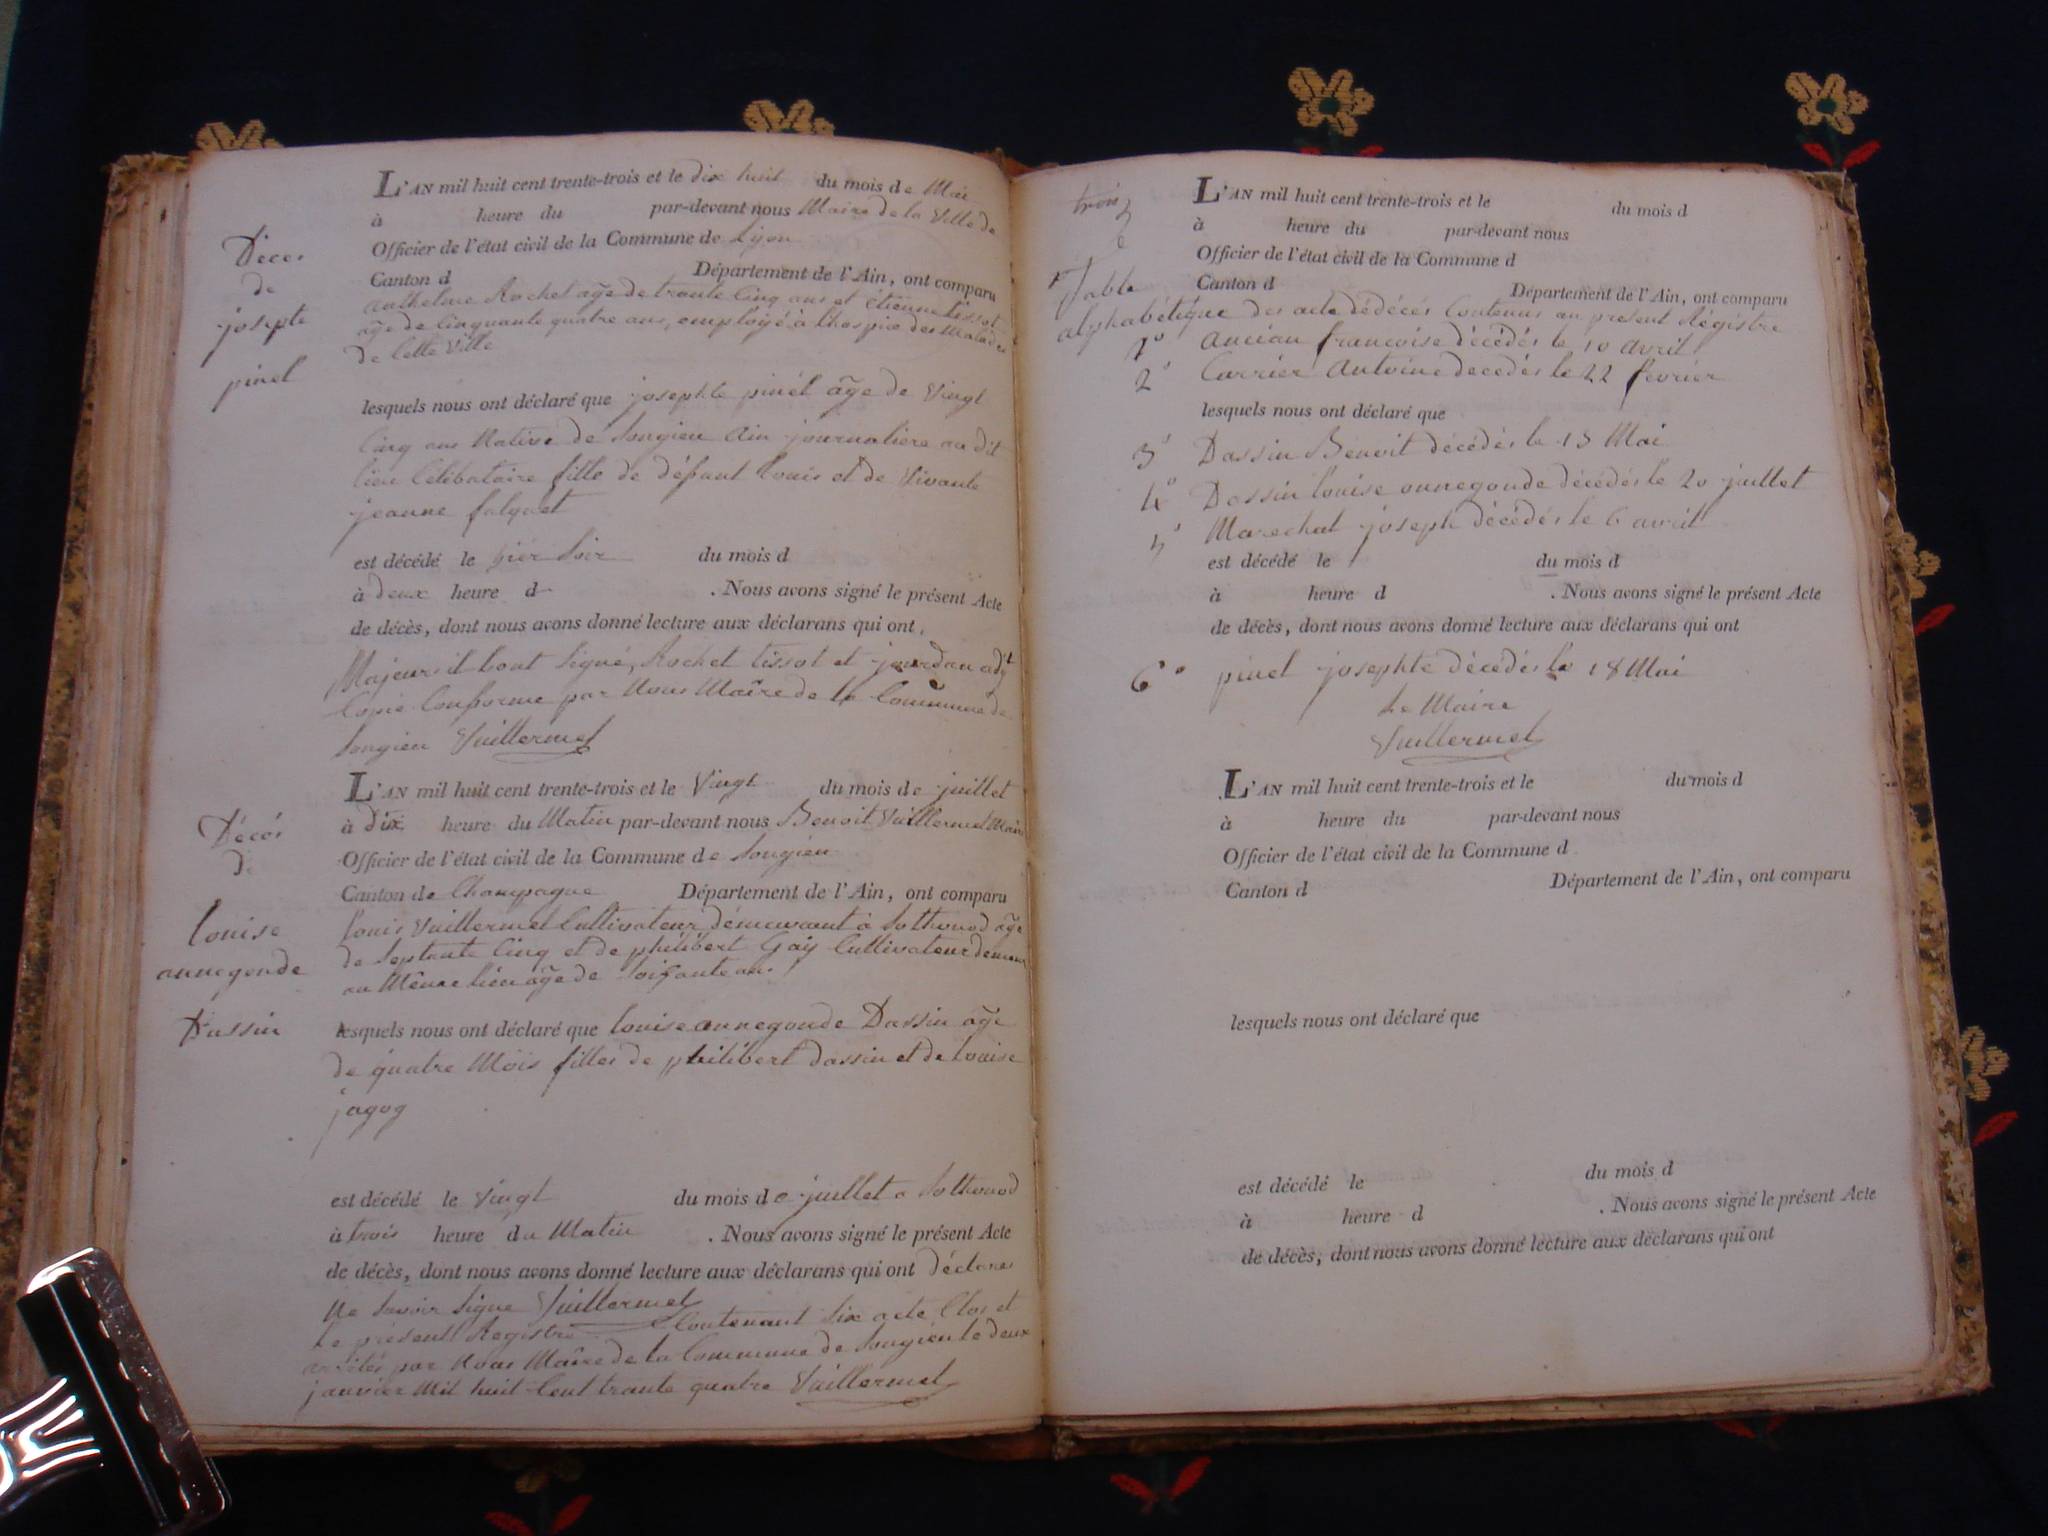 Décès
de
josepte
pinel
L'AN mil huit cent trente-trois et le dix huit du mois de Mai
à heure du par-devant nous Maire de la Ville de
Officier de l'état civil de la Commune de Lyon
Canton d Département de l'Ain, ont comparu
anthelme Rochet age de trante Cinq ans et étienne tissot
age de Cinquante quatre ans, employé à lhospice des Malades
de Cette Ville
lesquels nous ont déclaré que josephte pinel age de Vingt
Cinq ans Native de Songieu Ain journaliere au dit
lieu Célibataire fille de défunt louis et de Vivante
jeanne falquet
est décédé le hier Soir du mois d
à deux heure d . Nous avons signé le présent Acte
de décès, dont nous avons donné lecture aux déclarans qui ont
Majeurs il lont Signé, Rochet tissot et jourdan adjt
Copie Conforme par Nous Maire de la Commune de
Songieu Vuillermet
Décés
de
louise
annegonde
Dassin
L'AN mil huit cent trente-trois et le Vingt du mois de juillet
à dix heure du Matin par-devant nous Benoit Vuillermet Maire
Officier de l'état civil de la Commune de Songieu
Canton de Champagne Département de l'Ain, ont comparu
louis Vuillermet Cultivateur démeurant à Sothonod age
de Septante Cinq et de philibert Gay Cultivateur demeur
au Même lieu age de Soixante ans
lesquels nous ont déclaré que louise annegonde Dassin age
de quatre Mois filles de philibert dassin et de louise
jagog
est décédé le Vingt du mois de juillet a Sothonod
à trois heure du Matin . Nous avons signé le présent Acte
de décès, dont nous avons donné lecture aux déclarans qui ont déclarés
Ne Savoir Signe Vuillermet
Le présent Registre Contenant Six acte Clos et
arrêtés par Nous Maire de la Commune de Songieu le deux
janvier Mil huit Cent trante quatre Vuillermet
trois
L'AN mil huit cent trente-trois et le du mois d
à heure du par-devant nous
Officier de l'état civil de la Commune d
Canton d Département de l'Ain, ont comparu
Table
alphabétique des acte dédécés Contenus au présent Régistre
1° Ancian francoise décédés le 10 avril
2° Carrier Antoine decedés le 22 fevrier
lesquels nous ont déclaré que
3° Dassin Benoit décédés le 15 Mai
4° Dassin louise annegonde décédés le 20 juillet
5° Marechal joseph décédés le 6 avril
est décédé le du mois d
à heure d . Nous avons signé le présent Acte
de décès, dont nous avons donné lecture aux déclarans qui ont
6° pinel josephte décédés le 18 Mai
Le Maire
Vuillermet
L'AN mil huit cent trente-trois et le du mois d
à heure du par-devant nous
Officier de l'état civil de la Commune d
Canton d Département de l'Ain, ont comparu
lesquels nous ont déclaré que
est décédé le du mois d
à heure d . Nous avons signé le présent Acte
de décès, dont nous avons donné lecture aux déclarans qui ont